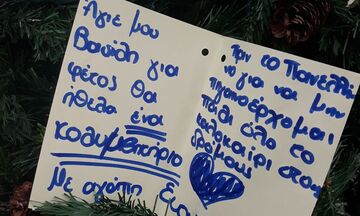 Άγιε μου
Βασίλη για
φέτος θα
ήθελα ένα
κολυμβητήριο
Με αγάπη
Πριν το Πανελλή
νιο για να μην
πηγαινοέρχομαι
πάλι όλο το
καλοκαίρι στους
δρόμους